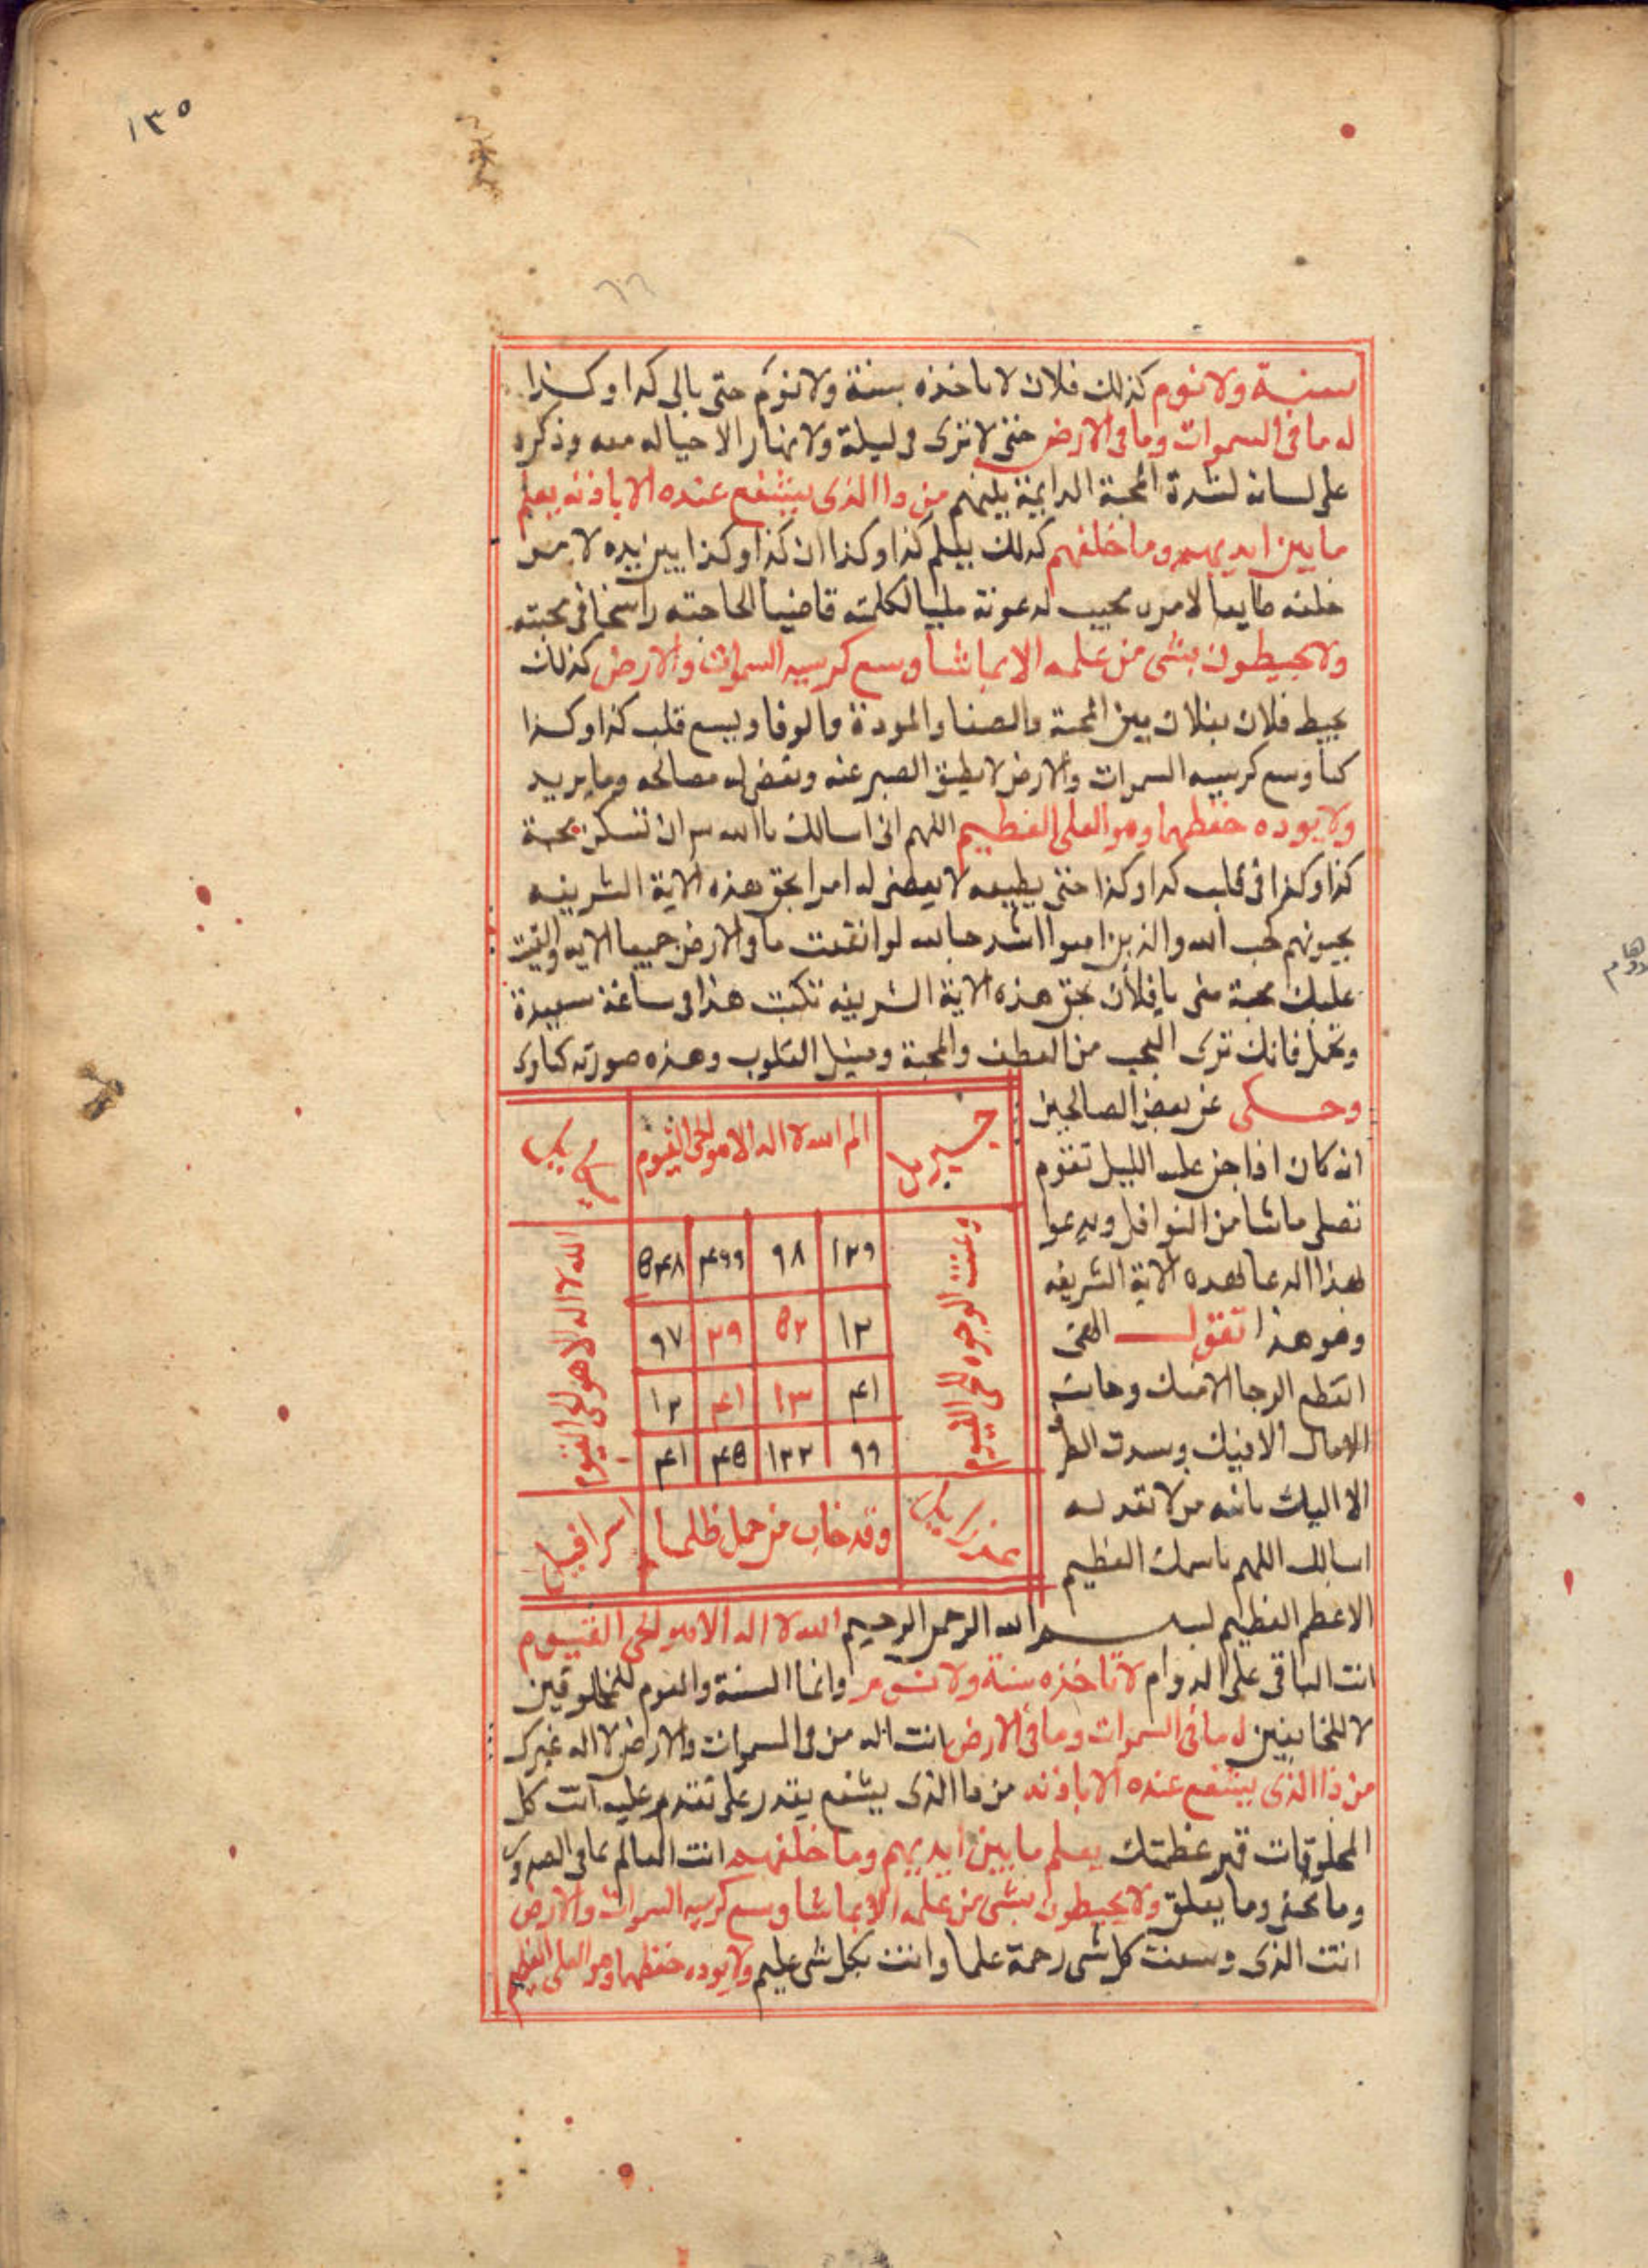 ١٣٥
سنة ولا نوم كذلك فلان لا تاخذه سنة ولا نوم حتى ياتى كدا وكذا
له ما فى السموات وما فى الارض حتى لا تترك فى ليلة ولا نهار الا خياله معه وذكره
على لسانه لشدة المحبة الدايمة بينهم من ذا الذى يشفع عنده الا باذنه يعلم
ما بين ايديهم وما خلفهم كذلك يعلم كذا وكذا ان كذا وكذا بين يديه لا من
خلفه طايعا لامره مجيب لدعوته ملبيا لكلمته قاضيا لحاجته راسخا فى محبته
ولا يحيطون بشى من علمه الا بما شا وسع كرسيه السموات والارض كذلك
يحيط فلان بفلان بين المحبة والصفا والمودة والوفا ويسع قلب كذا وكذا
كما وسع كرسيه السموات والارض لا يطيق الصبر عنه وتقض له مصالحه وما يريد
ولا يوده حفظهما وهو العلى العظيم اللهم انى اسالك يا الله ان تسكن محبة
كذا وكذا فى قلب كدا وكذا حتى يطيعه لا يعصى له امرا بحق هذه الاية الشريفه
يحبونهم كحب الله والذين امنوا اشد حبا لله لو انفقت ما فى الارض جميعا الايه والقيت
عليك محبة منى يا فلان بحق هذه الاية الشريفه تكتب هذا فى ساعة سعيدة
وتحمل فانك ترى العجب من العطف والمحبة وميل القلوب وهذه صورته كما ترى
وحكى عن بعض الصالحين
انه كان اذا جن عليه الليل تقوم
تصلى ما شا من النوافل ويدعوا
بهذا الدعا بهده الاية الشريفه
وهو هذا تقول الهى
انقطع الرجا الا منك وخابت
الامال الا فيك وسدت الطر
الا اليك
اسالك اللهم باسمك العظيم
جبريل
الم الله لا اله الا هو الحى القيوم
وعنت الوجوه للحى القيوم
الله لا اله الا هو الحى القيوم
١٣٩ ٩٨ ٤٩٩ ٥٤٨
١٢ ٥٢ ٣٩ ٩٧
٤١ ١٣ ٤١ ١٢
٩٩ ١٢٢ ٤٥ ٤١
عزراييل
وقد خاب من حمل ظلما
اسرافيل
الاعظم العظيم بسم الله الرحمن الرحيم الله لا اله الا هو الحى القيوم
انت الباقى على الدوام لا تاخذه سنة ولا نوم وانما السنة والنوم للمخلوقين
لا للخالقين له ما فى السموات وما فى الارض انت اله من فى السموات والارض لا اله غيرك
من ذا الذى يشفع عنده الا باذنه من ذا الذى يشفع يقدر على تقدم عليه انت كل
المخلوقات قهر عظمتك يعلم ما بين ايديهم وما خلفهم انت العالم بما فى الصدور
وما تخفى وما يعلق ولا يحيطون بشى من علمه الا بما شا وسع كرسيه السموات والارض
انت الذى وسعت كل شى رحمة علما وانت بكل شى عليم ولا يوده حفظهما وهو العلى العظيم